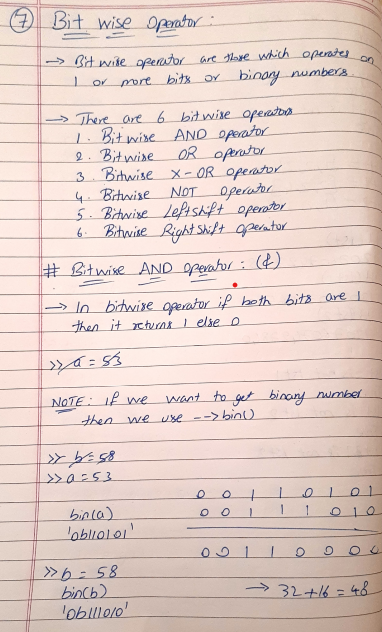 ⑦ Bit wise operator :
→ Bit wise operator are those which operates on
1 or more bits or binary numbers.
→ There are 6 bitwise operators
1. Bitwise AND operator
2. Bitwise OR operator
3. Bitwise X-OR operator
4. Bitwise NOT operator
5. Bitwise Leftshift operator
6. Bitwise Rightshift operator
# Bitwise AND operator : (&)
→ In bitwise operator if both bits are 1
then it returns 1 else 0
>> a = 53
NOTE : if we want to get binary number
then we use --> bin()
>> b = 58
>> a = 53
0 0 1 1 0 1 0 1
bin(a) 0 0 1 1 1 0 1 0
'0b110101'
0 0 1 1 0 0 0 0
>> b = 58 → 32 + 16 = 48
bin(b)
'0b111010'